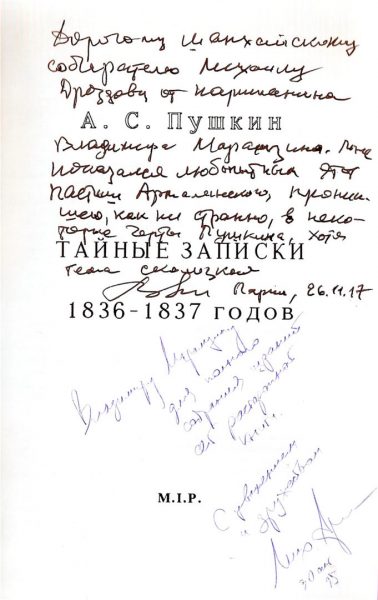 Дорогому шанхайскому
собирателю Михаилу
Дроздову от парижанина
А. С. Пушкин
Владимира Марамзина. Мне
показался любопытным этот
пастиш Армалинского, проник-
шего, как ни странно, в неко-
торые черты Пушкина, хотя
ТАЙНЫЕ ЗАПИСКИ
тема скользкая
Париж, 26.11.17
1836-1837 ГОДОВ
Владимиру Марамзину
для полного
собрания изданий
от
книги.
M.I.P.
С уважением
и дружеством